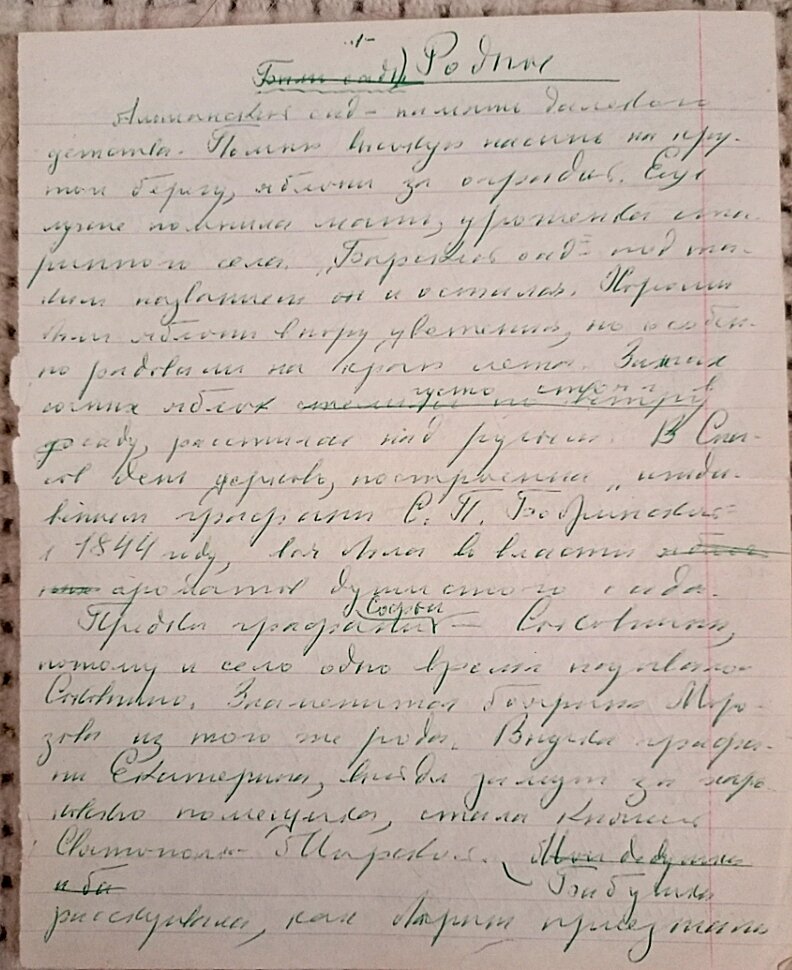 -1-
Были сады) Родное
Алпанский сад - память далёкого
детства. Помню высокую насыпь на кру-
том берегу, яблони за оградой. Ещё
лучше помнила мать, уроженка ста-
ринного села. „Барский сад" - под та-
ким названием он и остался. Хороши
были яблони в пору цветения, но особен-
но радовали на краю лета. Запах
самих яблок густо стоял в
саду, расстилая над рулями. В Спа-
сов день церковь, построенная „ижди-
вением графини С. П. Бобринской
в 1844 году, вся была во власти
ароматов душистого сада.
Предки графини Софьи - Соковнины,
потому и село одно время называлось
Соковнино. Знаменитая боярыня Моро-
зова из того же рода. Внучка графи-
ни Екатерина, выйдя замуж за харь-
ковского помещика, стала княгиней
Святополк-Мирской. Мои дедушка
и ба Бабушка
рассказывала, как барыня приезжала